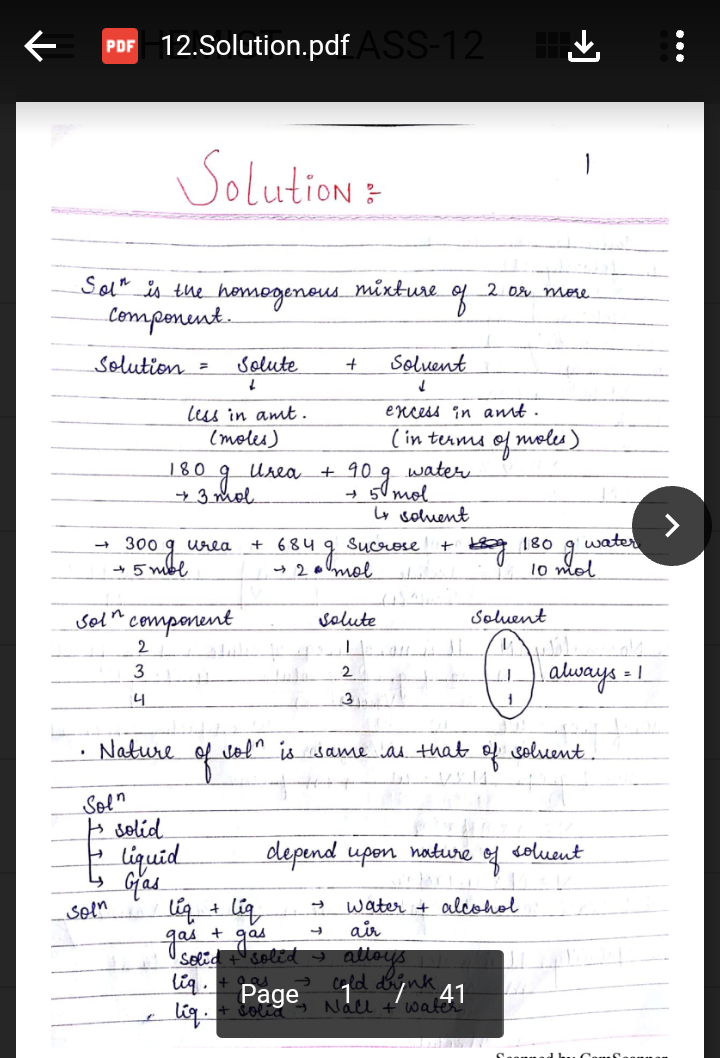 12.Solution.pdf
PDF
1
Solution :-
Solⁿ is the homogenous mixture of 2 or more
component.
Solution = Solute + Solvent
↓ ↓
less in amt. excess in amt.
(moles) (in terms of moles)
180 g Urea + 90 g water
→ 3 mol → 5 mol
↳ solvent
→ 300 g urea + 684 g Sucrose + 180 g water
→ 5 mol → 2 mol 10 mol
Solⁿ component Solute Solvent
2 1 1
3 2 1 always = 1
4 3 1
• Nature of solⁿ is same as that of solvent.
Solⁿ
→ solid
→ liquid depend upon nature of solvent
↳ Gas
Solⁿ liq + liq → water + alcohol
gas + gas → air
Solid + solid → alloys
liq. + gas → cold drink
liq. + solid → NaCl + water
Page 1 / 41